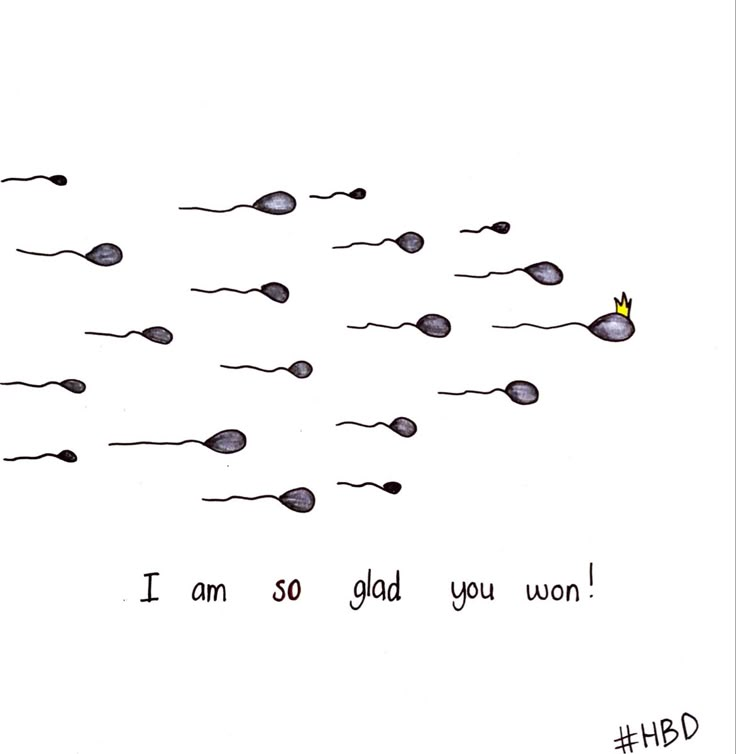 I am so glad you won!
#HBD